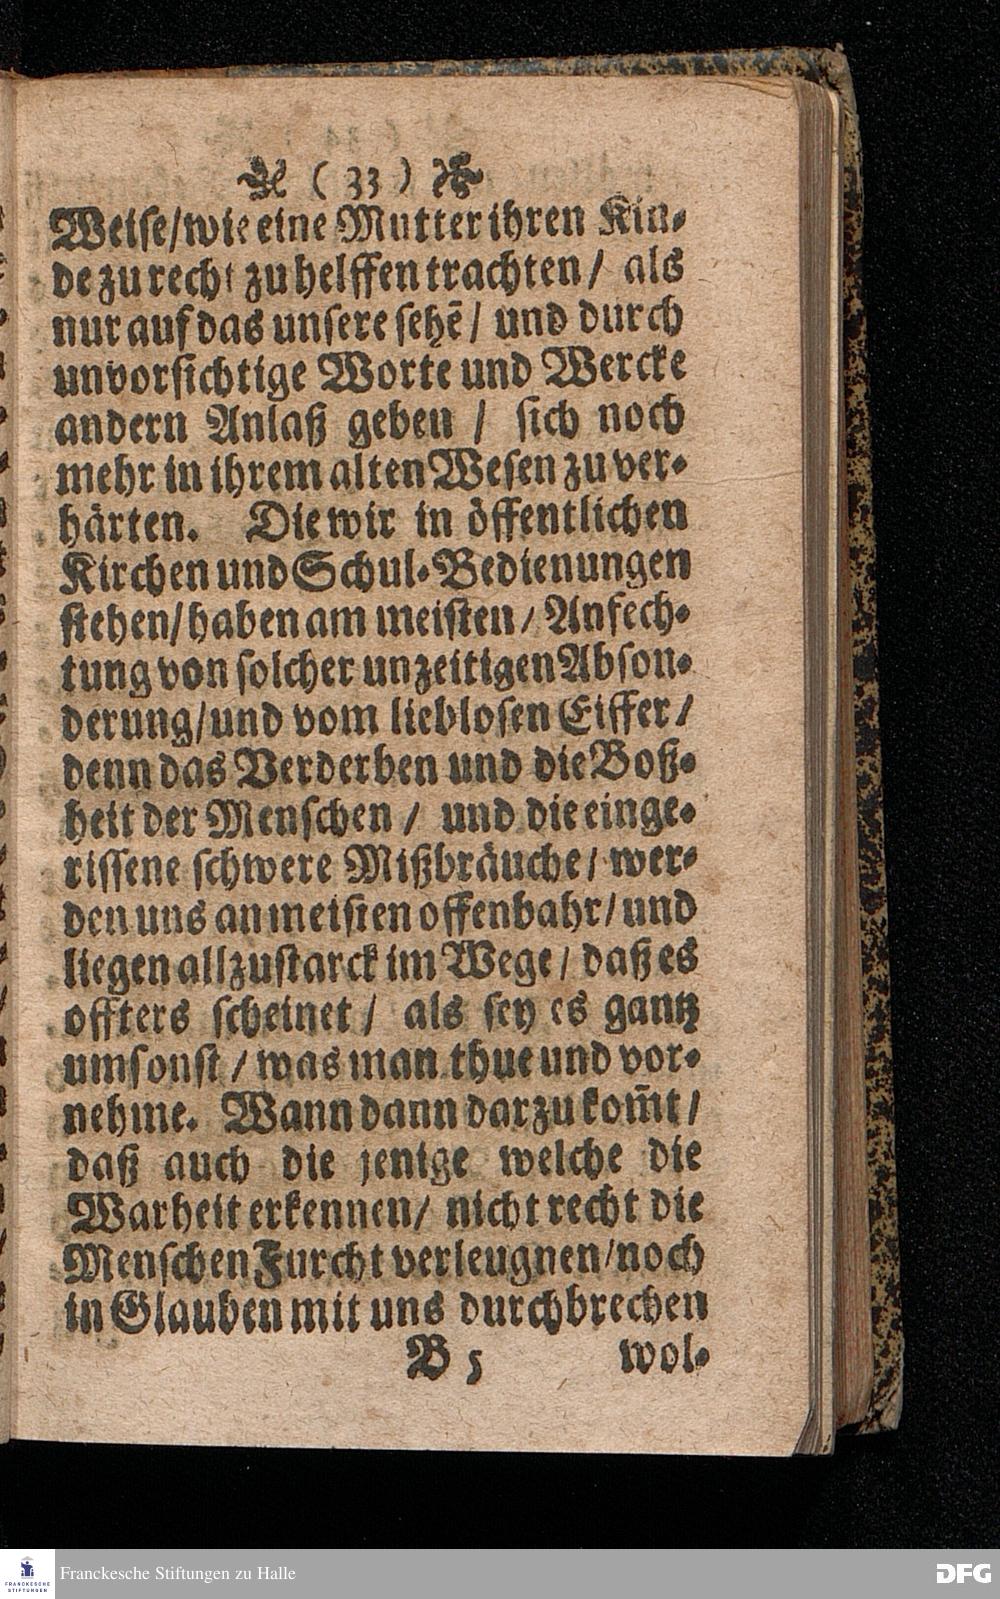 ( 33 )
Weise/wie eine Mutter ihren Kin-
de zu recht zu helffen trachten/ als
nur auf das unsere sehē/ und durch
unvorsichtige Worte und Wercke
andern Anlaß geben / sich noch
mehr in ihrem alten Wesen zu ver-
härten. Die wir in öffentlichen
Kirchen und Schul-Bedienungen
stehen/haben am meisten/ Anfech-
tung von solcher unzeitigen Abson-
derung/und vom lieblosen Eiffer/
denn das Verderben und die Boß-
heit der Menschen / und die einge-
rissene schwere Mißbräuche/ wer-
den uns am meisten offenbahr/und
liegen allzustarck im Wege/ daß es
offters scheinet/ als sey es gantz
umsonst/ was man thue und vor-
nehme. Wann dann darzu kom̃t/
daß auch die jenige welche die
Warheit erkennen/ nicht recht die
Menschen Furcht verleugnen/noch
in Glauben mit uns durchbrechen
B 5 wol-
FRANCKESCHE STIFTUNGEN
Franckesche Stiftungen zu Halle
DFG